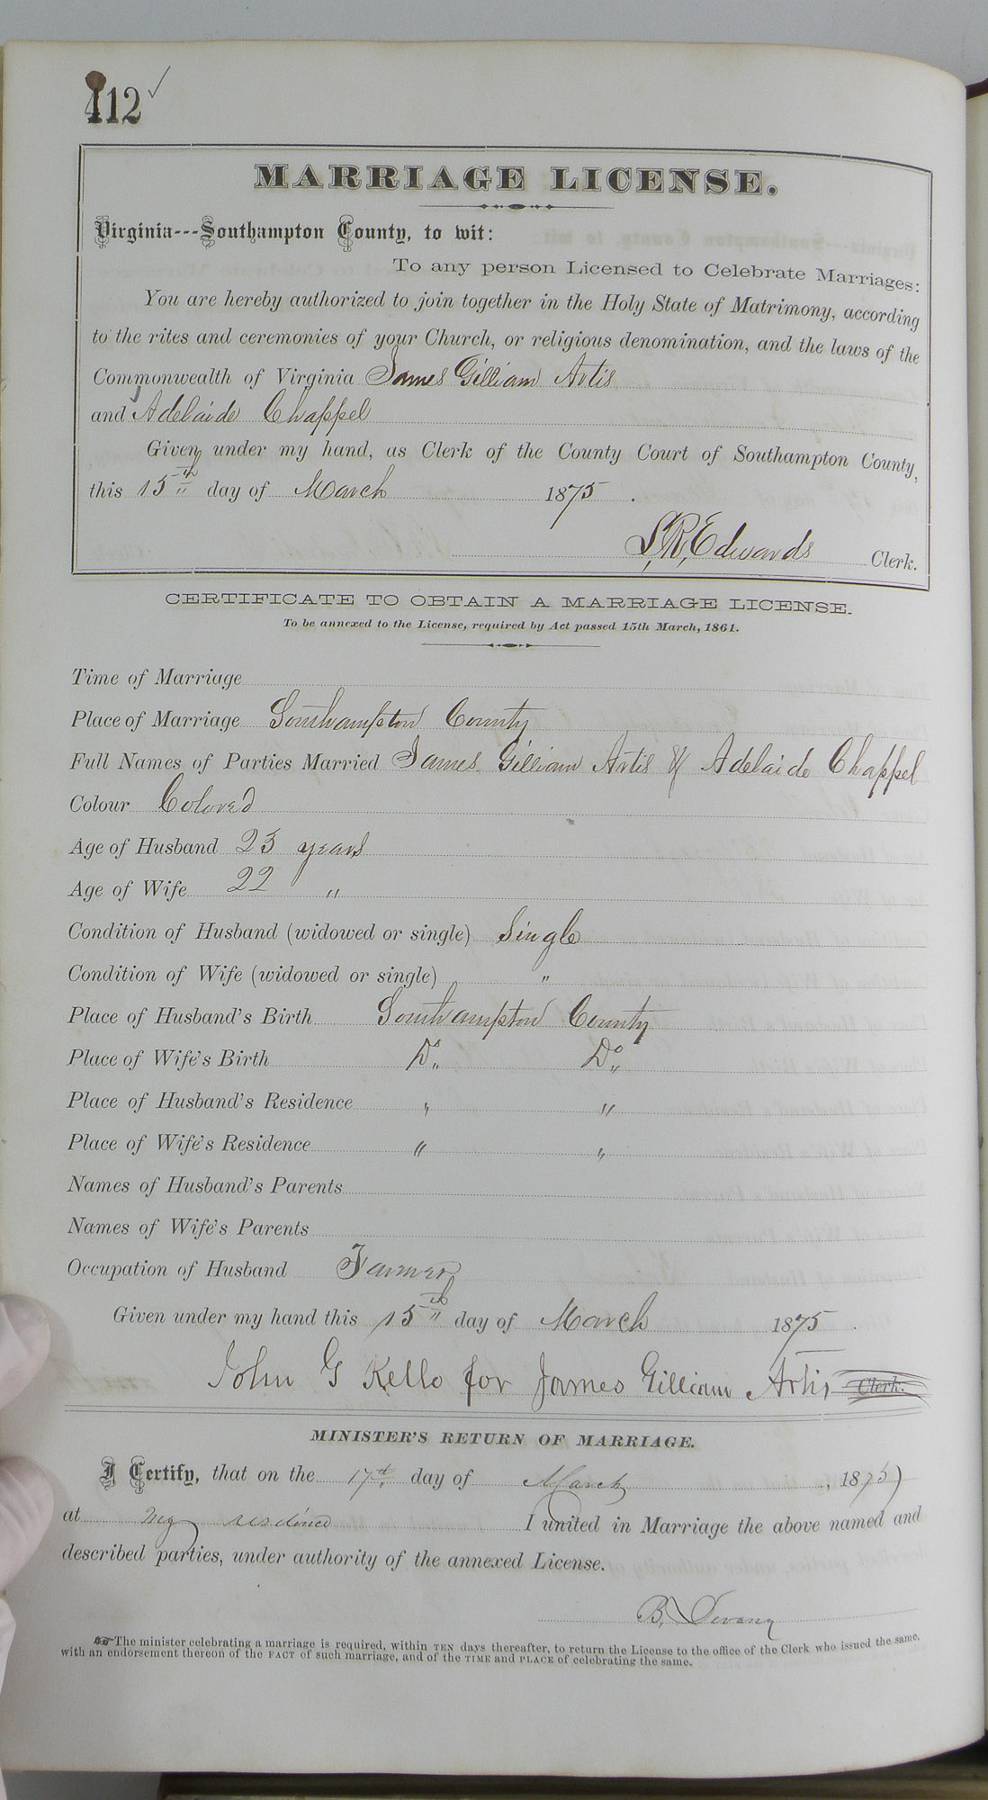 412 ✓
MARRIAGE LICENSE.
Virginia---Southampton County, to wit:
To any person Licensed to Celebrate Marriages:
You are hereby authorized to join together in the Holy State of Matrimony, according
to the rites and ceremonies of your Church, or religious denomination, and the laws of the
Commonwealth of Virginia James Gilliam Artis
and Adelaide Chappel
Given under my hand, as Clerk of the County Court of Southampton County,
this 15th day of March 1875.
L. R. Edwards Clerk.
CERTIFICATE TO OBTAIN A MARRIAGE LICENSE.
To be annexed to the License, required by Act passed 15th March, 1861.
Time of Marriage
Place of Marriage Southampton County
Full Names of Parties Married James Gilliam Artis & Adelaide Chappel
Colour Colored
Age of Husband 23 years
Age of Wife 22 "
Condition of Husband (widowed or single) Single
Condition of Wife (widowed or single) "
Place of Husband's Birth Southampton County
Place of Wife's Birth Do Do
Place of Husband's Residence " "
Place of Wife's Residence " "
Names of Husband's Parents
Names of Wife's Parents
Occupation of Husband Farmer
Given under my hand this 15th day of March 1875.
John G Kello for James Gilliam Artis Clerk.
MINISTER'S RETURN OF MARRIAGE.
I Certify, that on the 17th day of March, 1875)
at my resdince I united in Marriage the above named and
described parties, under authority of the annexed License.
B.
The minister celebrating a marriage is required, within TEN days thereafter, to return the License to the office of the Clerk who issued the same,
with an endorsement thereon of the FACT of such marriage, and of the TIME and PLACE of celebrating the same.